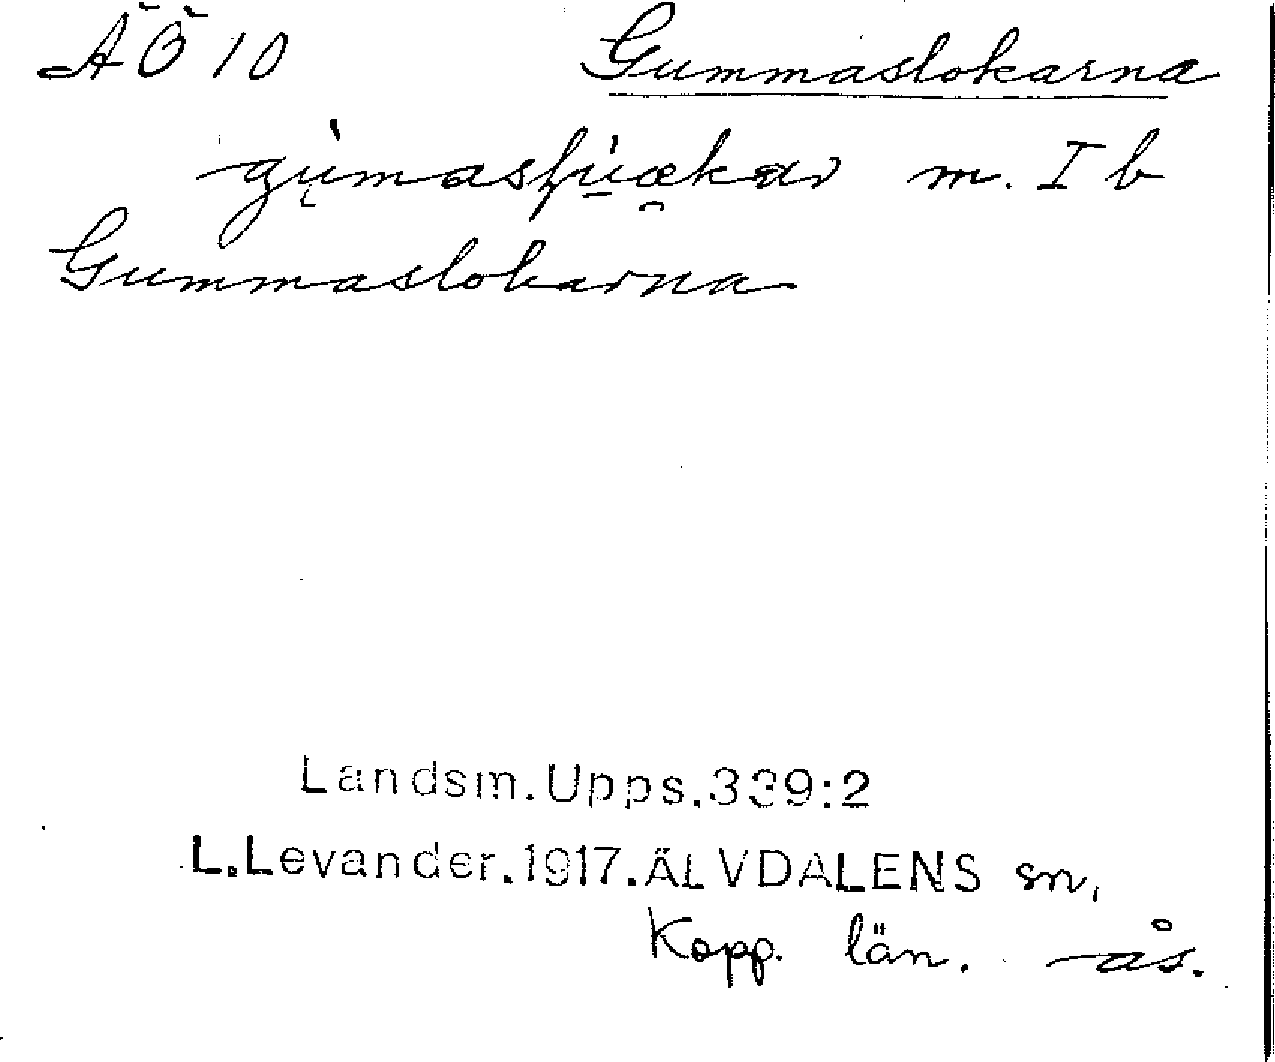 ÄÖ 10 Gummaslokarna
m. I b
Gummaslokarna
Landsm.Upps.339:2
L.Levander.1917.ÄLVDALENS sn,
Kopp. län. ås.